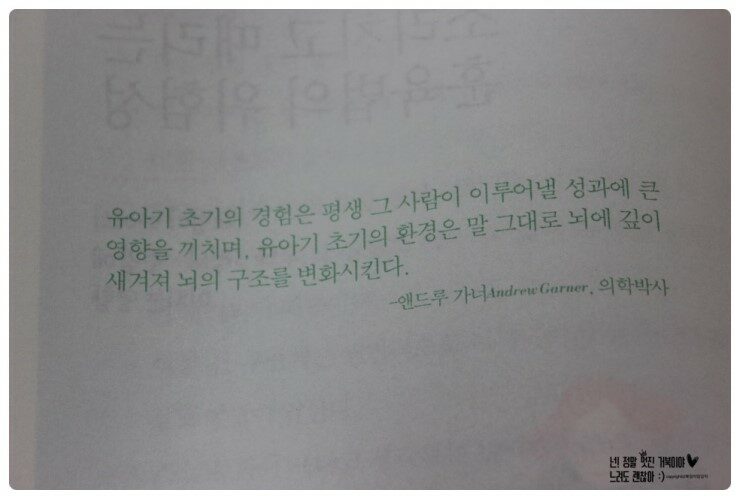 유아기 초기의 경험은 평생 그 사람이 이루어낼 성과에 큰
영향을 끼치며, 유아기 초기의 환경은 말 그대로 뇌에 깊이
새겨져 뇌의 구조를 변화시킨다.
-앤드루 가너Andrew Garner, 의학박사
넌! 정말 멋진 거북이야
느려도 괜찮아 :)